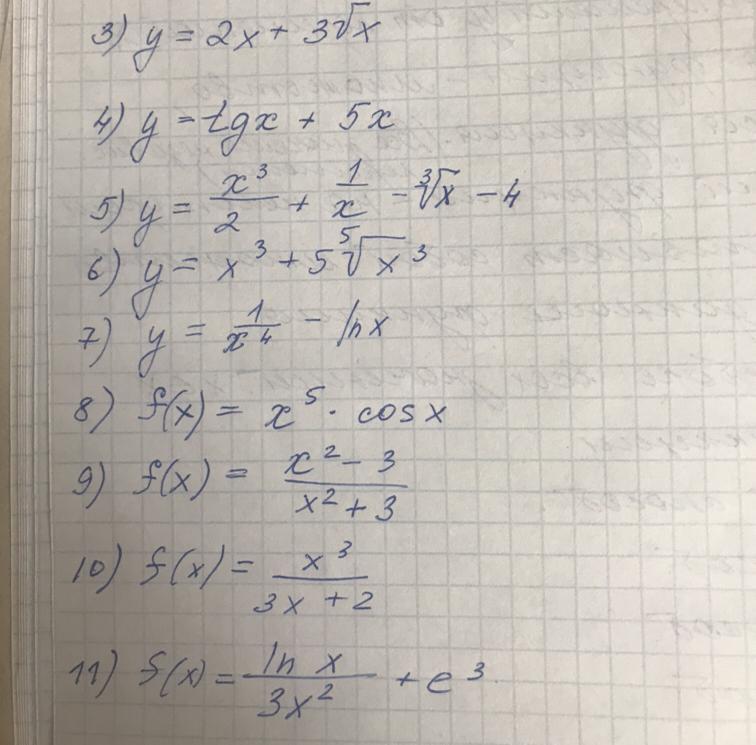 3) y = 2x + 3√x
4) y = tgx + 5x
5) y = x³/2 + 1/x - ∛x - 4
6) y = x³ + 5 ⁵√x³
7) y = 1/x⁴ - ln x
8) f(x) = x⁵ · cos x
9) f(x) = (x² - 3)/(x² + 3)
10) f(x) = x³/(3x + 2)
11) f(x) = ln x/3x² + e³